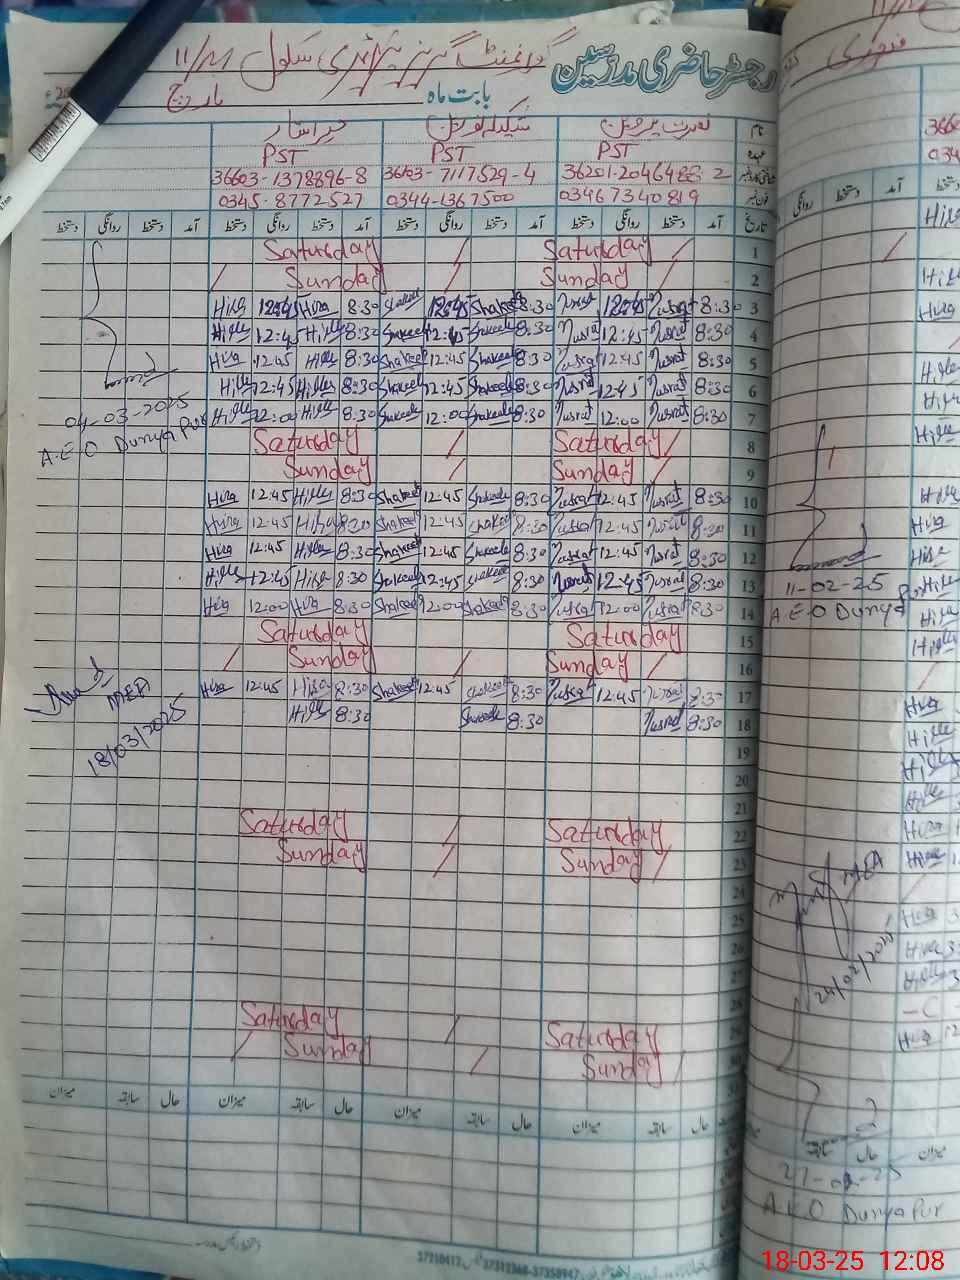 رجسٹر حاضری مدرسین گورنمنٹ گرلز پرائمری سکول
بابت ماہ مارچ
نام نصرت پروین شکیلہ نورین حرا ستار
عہدہ PST PST PST
شناختی کارڈ نمبر 36201-2046488-2 36603-7117529-4 36603-1378896-8
فون نمبر 03467340819 0344-1367500 0345-8772527
تاریخ آمد دستخط روانگی دستخط آمد دستخط روانگی دستخط آمد دستخط روانگی دستخط آمد دستخط روانگی دستخط
1 Saturday Saturday
2 Sunday Sunday
3 8:30 Nusrat 12:45 Nusrat 8:30 Shakeela 12:45 Shakeela 8:30 Hira 12:45 Hira
4 8:30 Nusrat 12:45 Nusrat 8:30 Shakeela 12:45 Shakeela 8:30 Hira 12:45 Hira
5 8:30 Nusrat 12:45 Nusrat 8:30 Shakeela 12:45 Shakeela 8:30 Hira 12:45 Hira
6 8:30 Nusrat 12:45 Nusrat 8:30 Shakeela 12:45 Shakeela 8:30 Hira 12:45 Hira
7 8:30 Nusrat 12:00 Nusrat 8:30 Shakeela 12:00 Shakeela 8:30 Hira 12:00 Hira
04-03-2025
A.E.O Dunya Pur
8 Saturday Saturday
9 Sunday Sunday
10 8:30 Nusrat 12:45 Nusrat 8:30 Shakeela 12:45 Shakeela 8:30 Hira 12:45 Hira
11 8:30 Nusrat 12:45 Nusrat 8:30 Shakeela 12:45 Shakeela 8:30 Hira 12:45 Hira
12 8:30 Nusrat 12:45 Nusrat 8:30 Shakeela 12:45 Shakeela 8:30 Hira 12:45 Hira
13 8:30 Nusrat 12:45 Nusrat 8:30 Shakeela 12:45 Shakeela 8:30 Hira 12:45 Hira
14 8:30 Nusrat 12:00 Nusrat 8:30 Shakeela 12:00 Shakeela 8:30 Hira 12:00 Hira
15 Saturday Saturday
16 Sunday Sunday
17 8:30 Nusrat 12:45 Nusrat 8:30 Shakeela 12:45 Shakeela 8:30 Hira 12:45 Hira
18 8:30 Nusrat 8:30 Shakeela 8:30 Hira
MEA
18/03/2025
19
20
21
22 Saturday Saturday
23 Sunday Sunday
24
25
26
27
28
29 Saturday Saturday
30 Sunday Sunday
31
حال سابقہ میزان حال سابقہ میزان حال سابقہ میزان حال سابقہ میزان
فروری
روانگی دستخط آمد دستخط
11-02-25
A.E.O Dunya Pur
MEA
24/02/2025
میزان حال سابقہ
27-02-25
A.E.O Dunya Pur
18-03-25 12:08